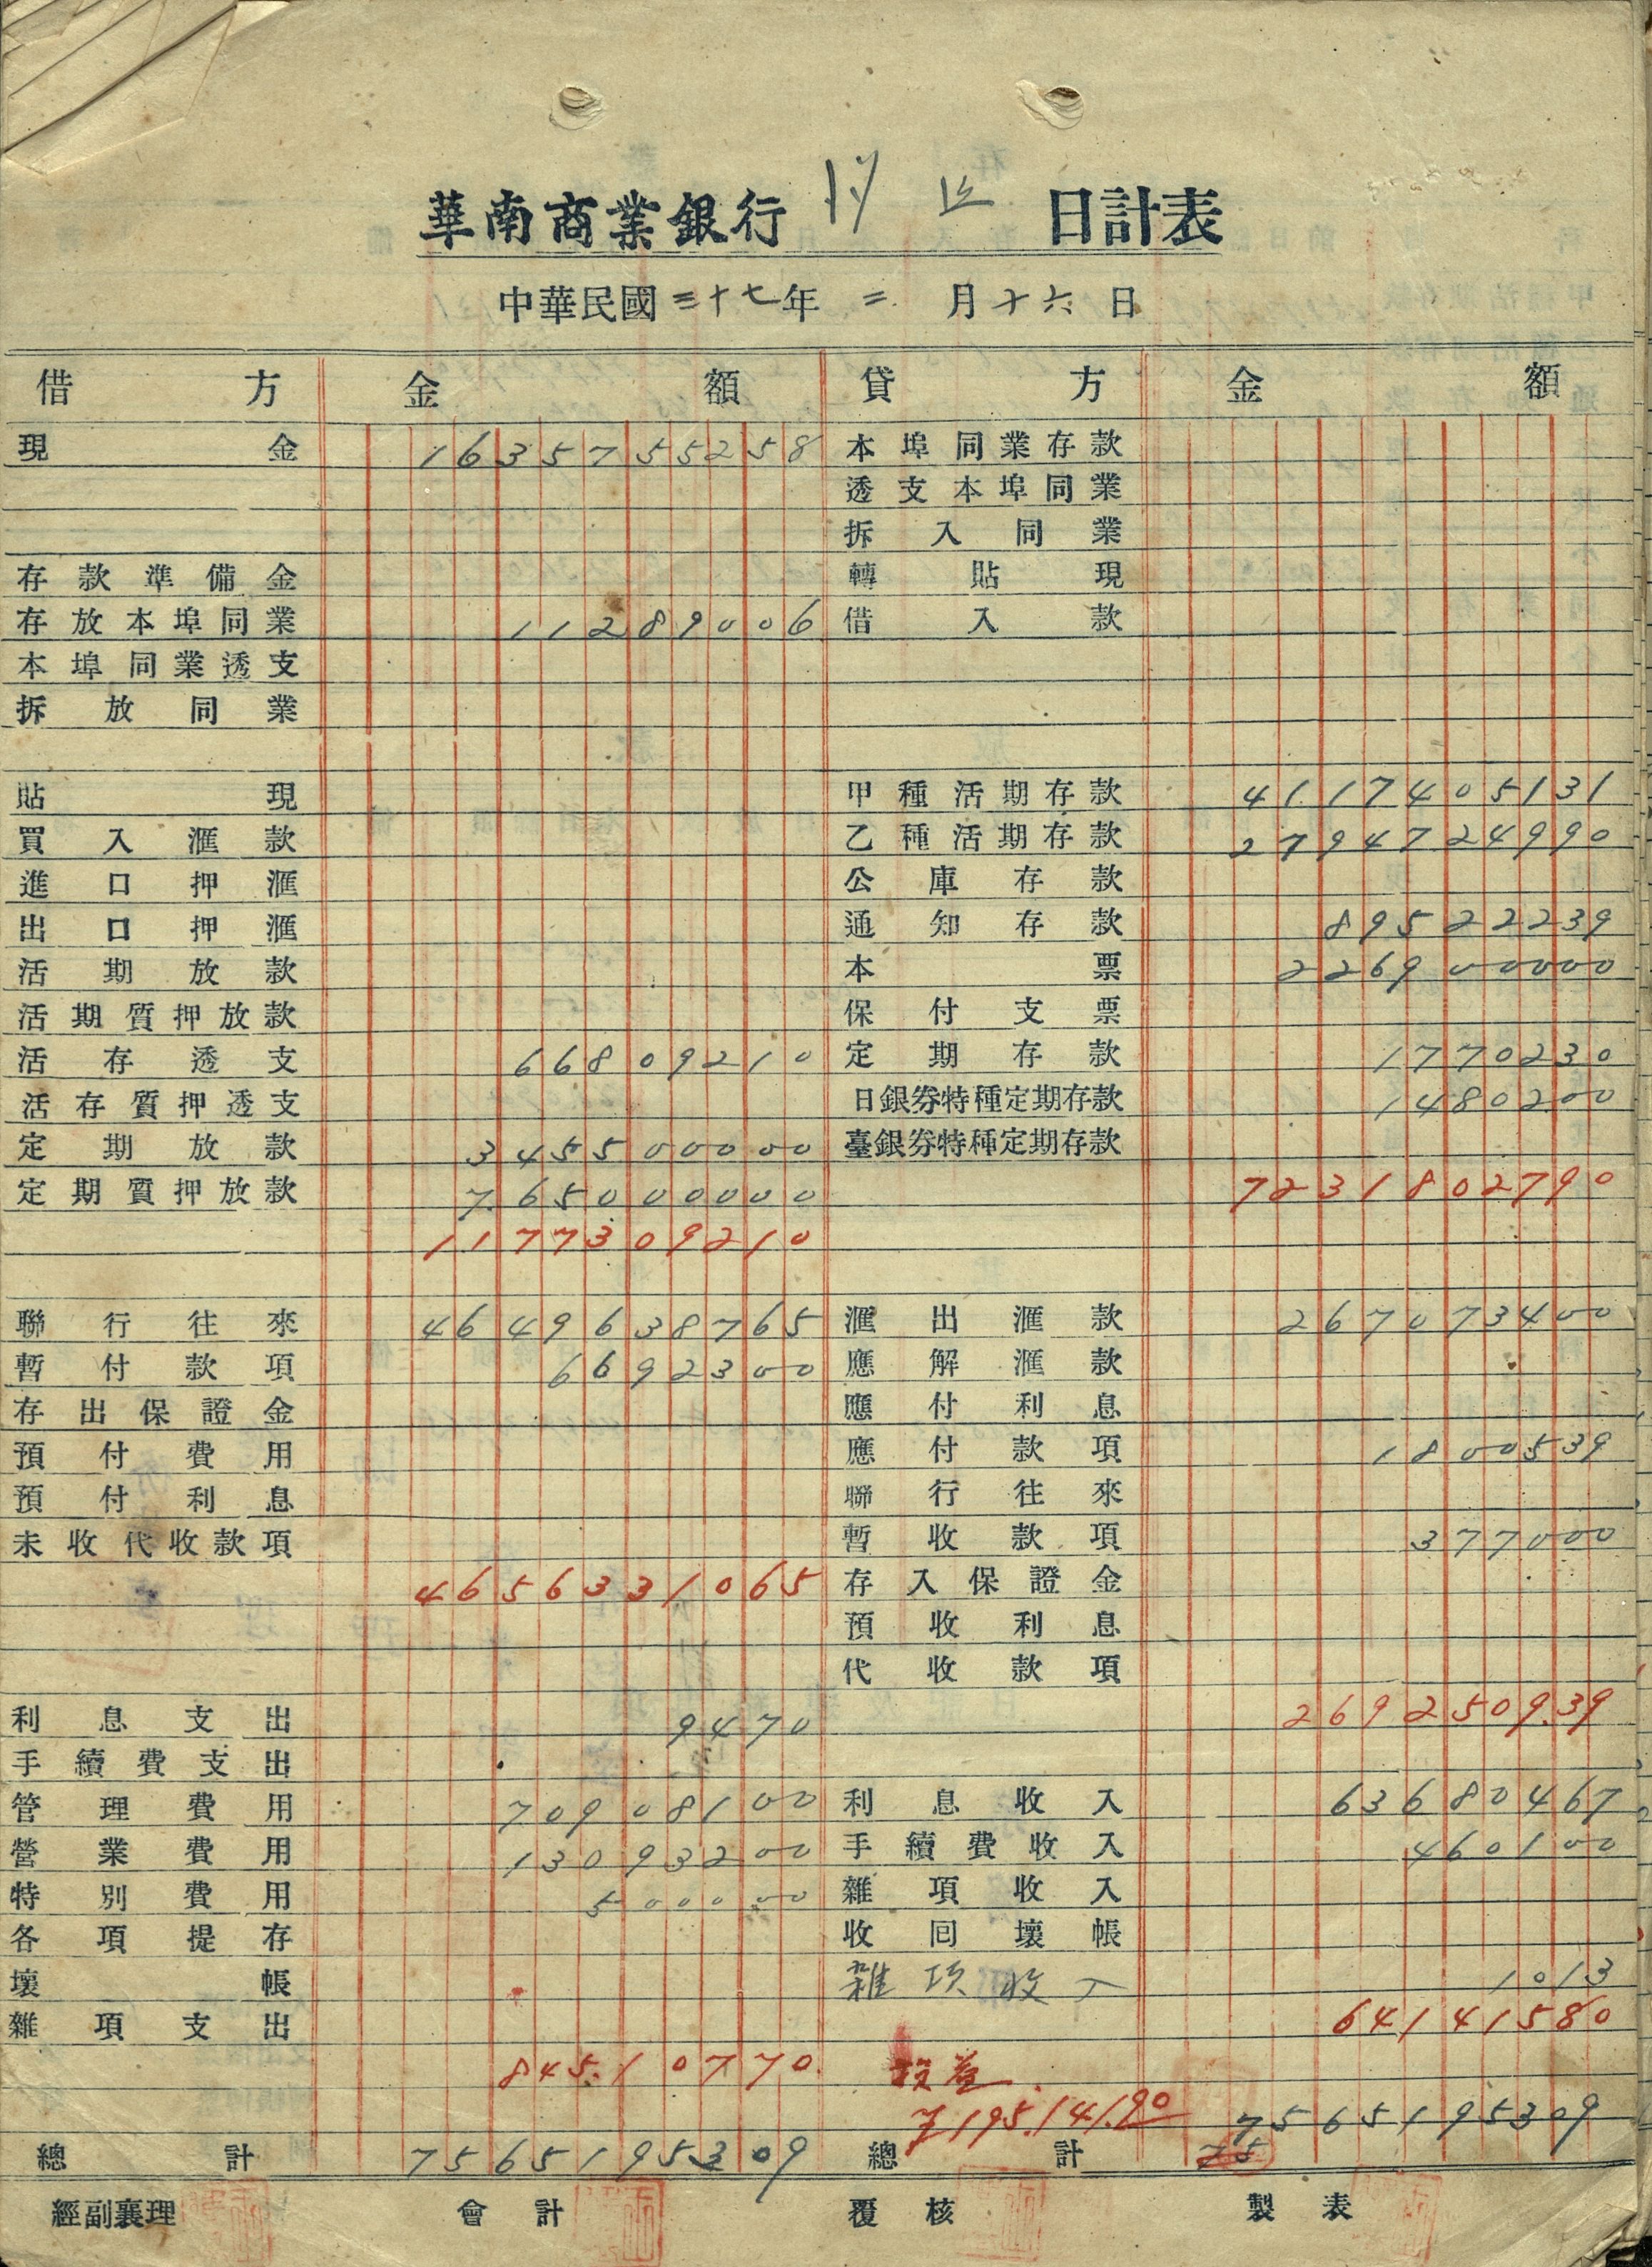 華南商業銀行 日計表
中華民國三十七年二月十六日
借方 金額 貸方 金額
現金 1635755258 本埠同業存款
透支本埠同業
拆入同業
存款準備金 轉貼現
存放本埠同業 11289006 借入款
本埠同業透支
拆放同業
貼現 甲種活期存款 4117405131
買入滙款 乙種活期存款 2794724990
進口押滙 公庫存款
出口押滙 通知存款 89522239
活期放款 本票 226900000
活期質押放款 保付支票
活存透支 66809210 定期存款 1770230
活存質押透支 日銀券特種定期存款 1480200
定期放款 345500000 臺銀券特種定期存款
定期質押放款 765000000 7231802790
1177309210
聯行往來 4649638765 滙出滙款 267073400
暫付款項 6692300 應解滙款
存出保證金 應付利息
預付費用 應付款項 1800539
預付利息 聯行往來
未收代收款項 暫收款項 377000
4656331065 存入保證金
預收利息
代收款項
利息支出 9470 2692509.39
手續費支出
管理費用 70908100 利息收入 63680467
營業費用 13093200 手續費收入 460100
特別費用 500000 雜項收入
各項提存 收回壞帳
壞帳 雜項收入 1013
雜項支出 64141580
845.10770
7565195309
總計 7565195309 總計 75
經副襄理 會計 覆核 製表